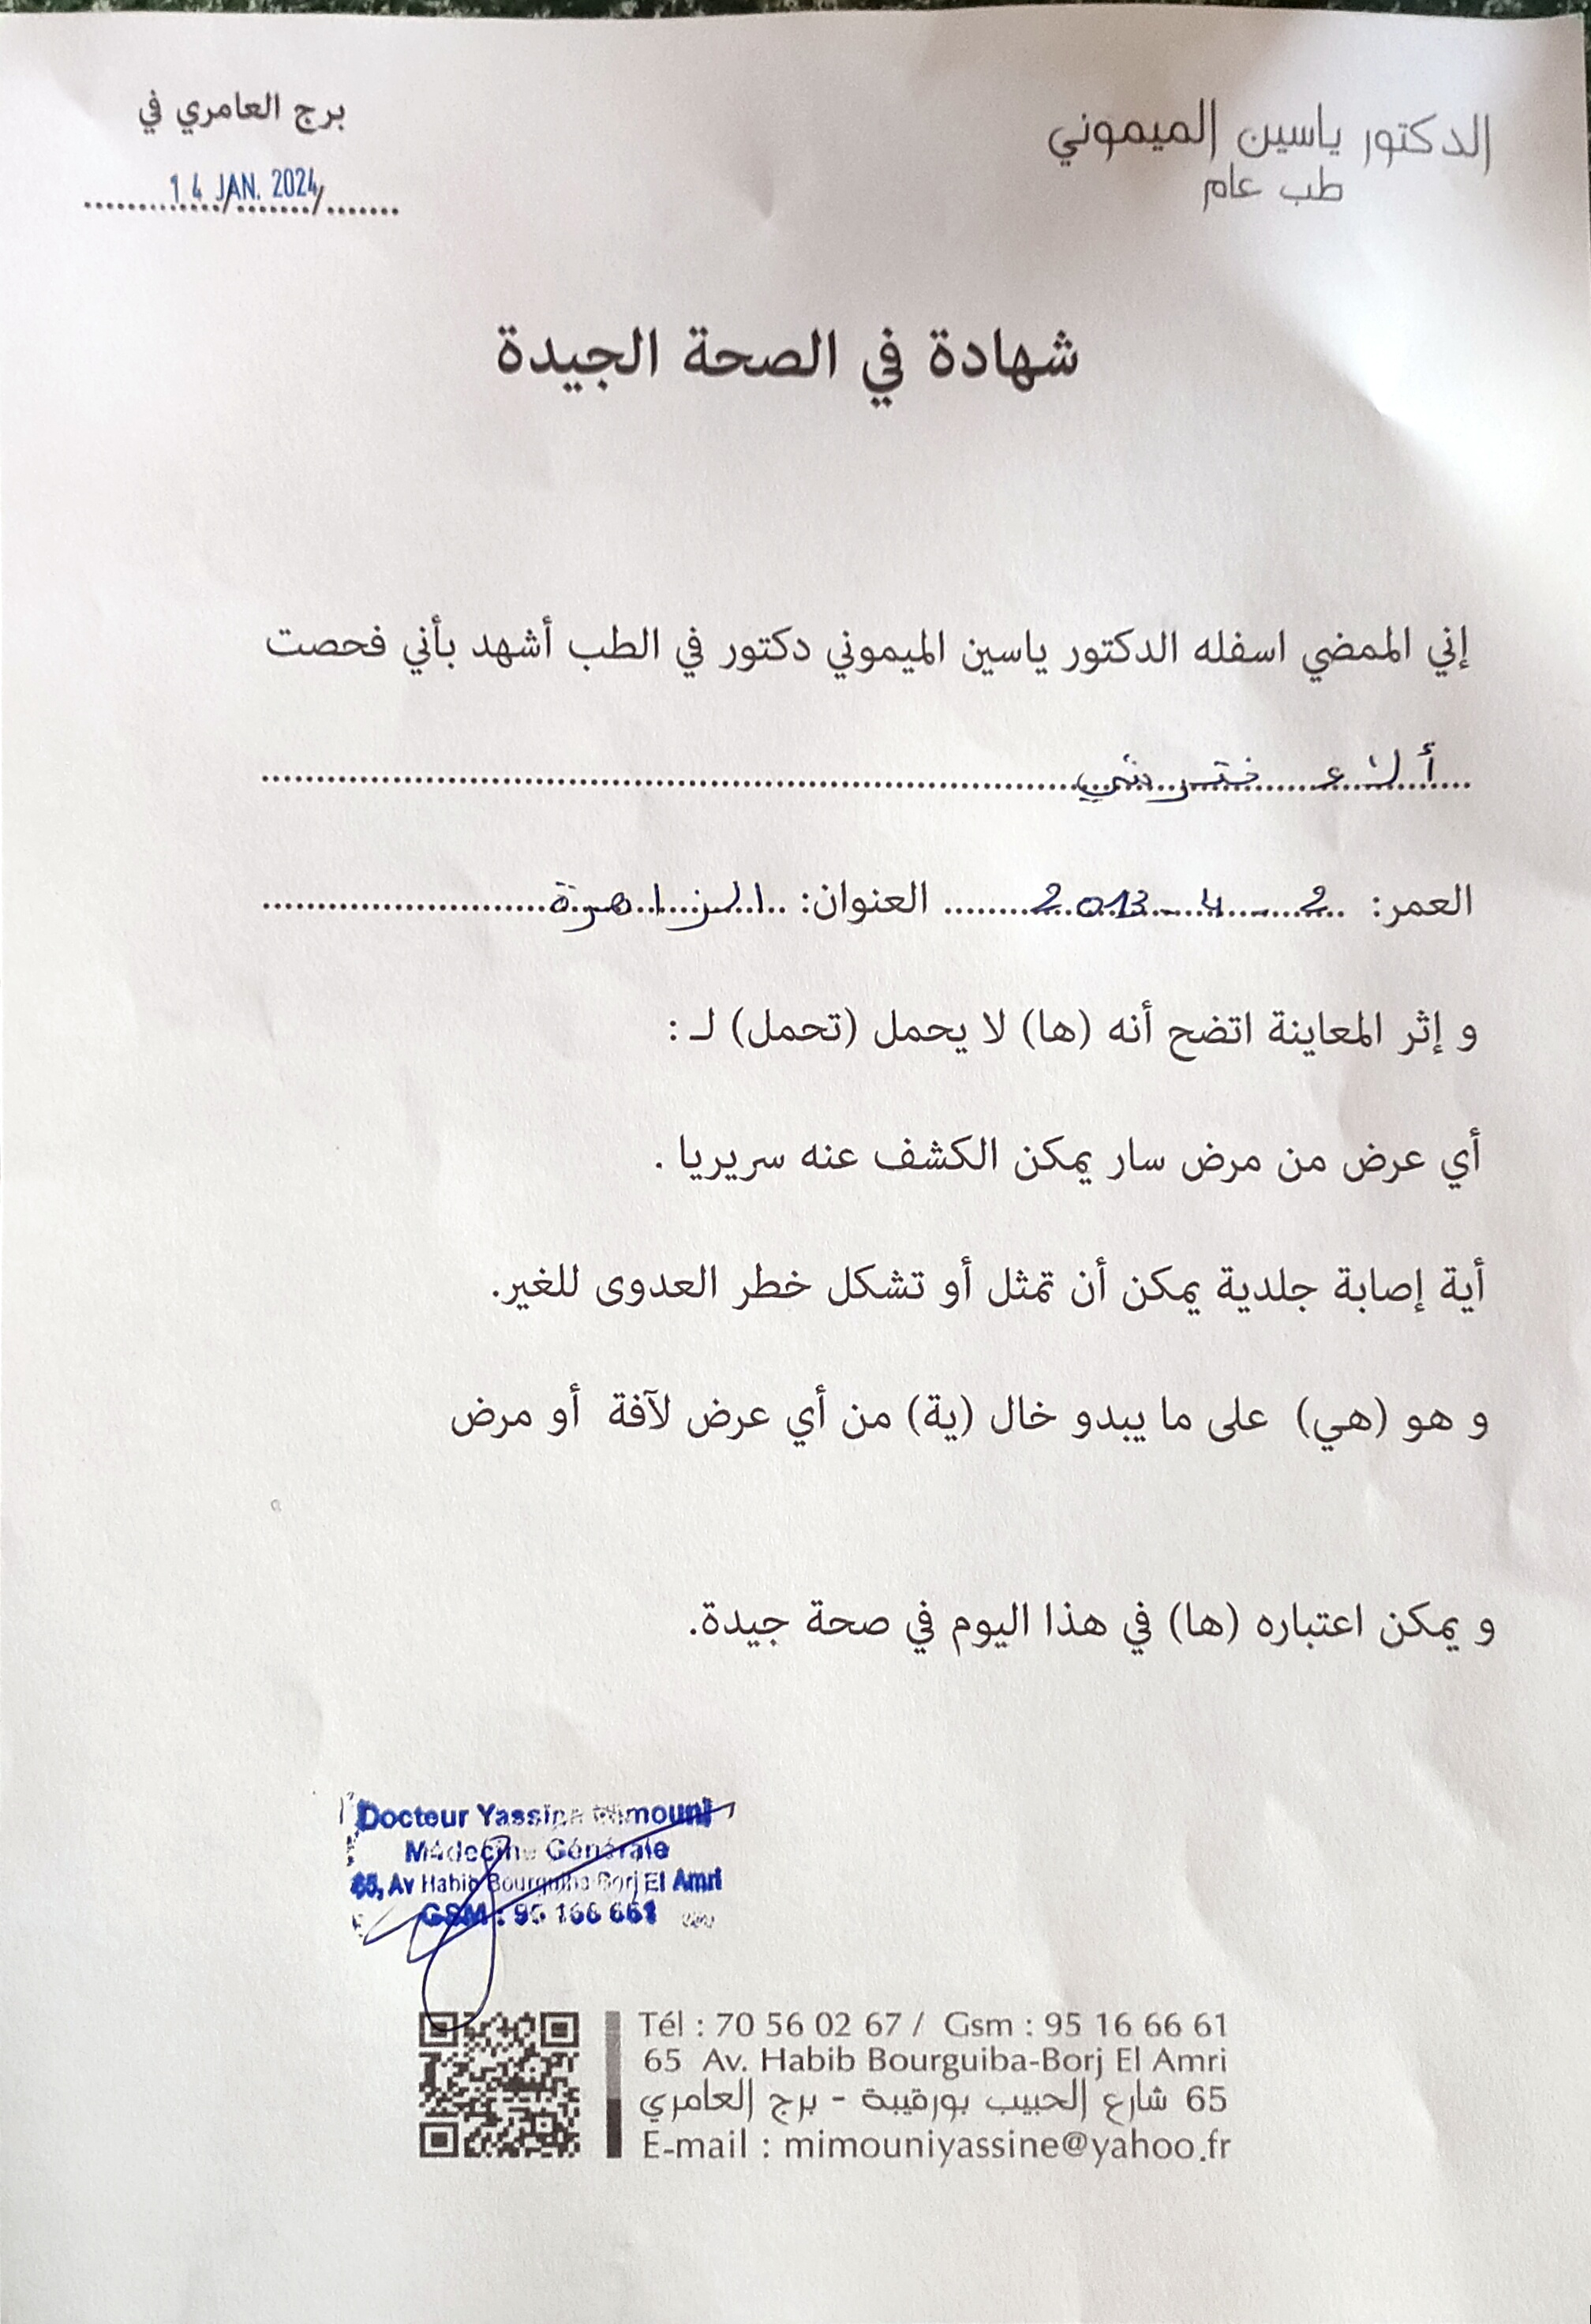 الدكتور ياسين الميموني
طب عام
برج العامري في
14 JAN. 2024
شهادة في الصحة الجيدة
إني الممضي اسفله الدكتور ياسين الميموني دكتور في الطب أشهد بأني فحصت
العمر: 2 - 4 - 2013 العنوان: الزاهرة
و إثر المعاينة اتضح أنه (ها) لا يحمل (تحمل) لـ :
أي عرض من مرض سار يمكن الكشف عنه سريريا .
أية إصابة جلدية يمكن أن تمثل أو تشكل خطر العدوى للغير.
و هو (هي) على ما يبدو خال (ية) من أي عرض لآفة أو مرض
و يمكن اعتباره (ها) في هذا اليوم في صحة جيدة.
Docteur Yassine Mimouni
Médecine Générale
65, Av Habib Bourguiba Borj El Amri
GSM : 95 166 661
Tél : 70 56 02 67 / Gsm : 95 16 66 61
65 Av. Habib Bourguiba-Borj El Amri
65 شارع الحبيب بورقيبة - برج العامري
E-mail : mimouniyassine@yahoo.fr